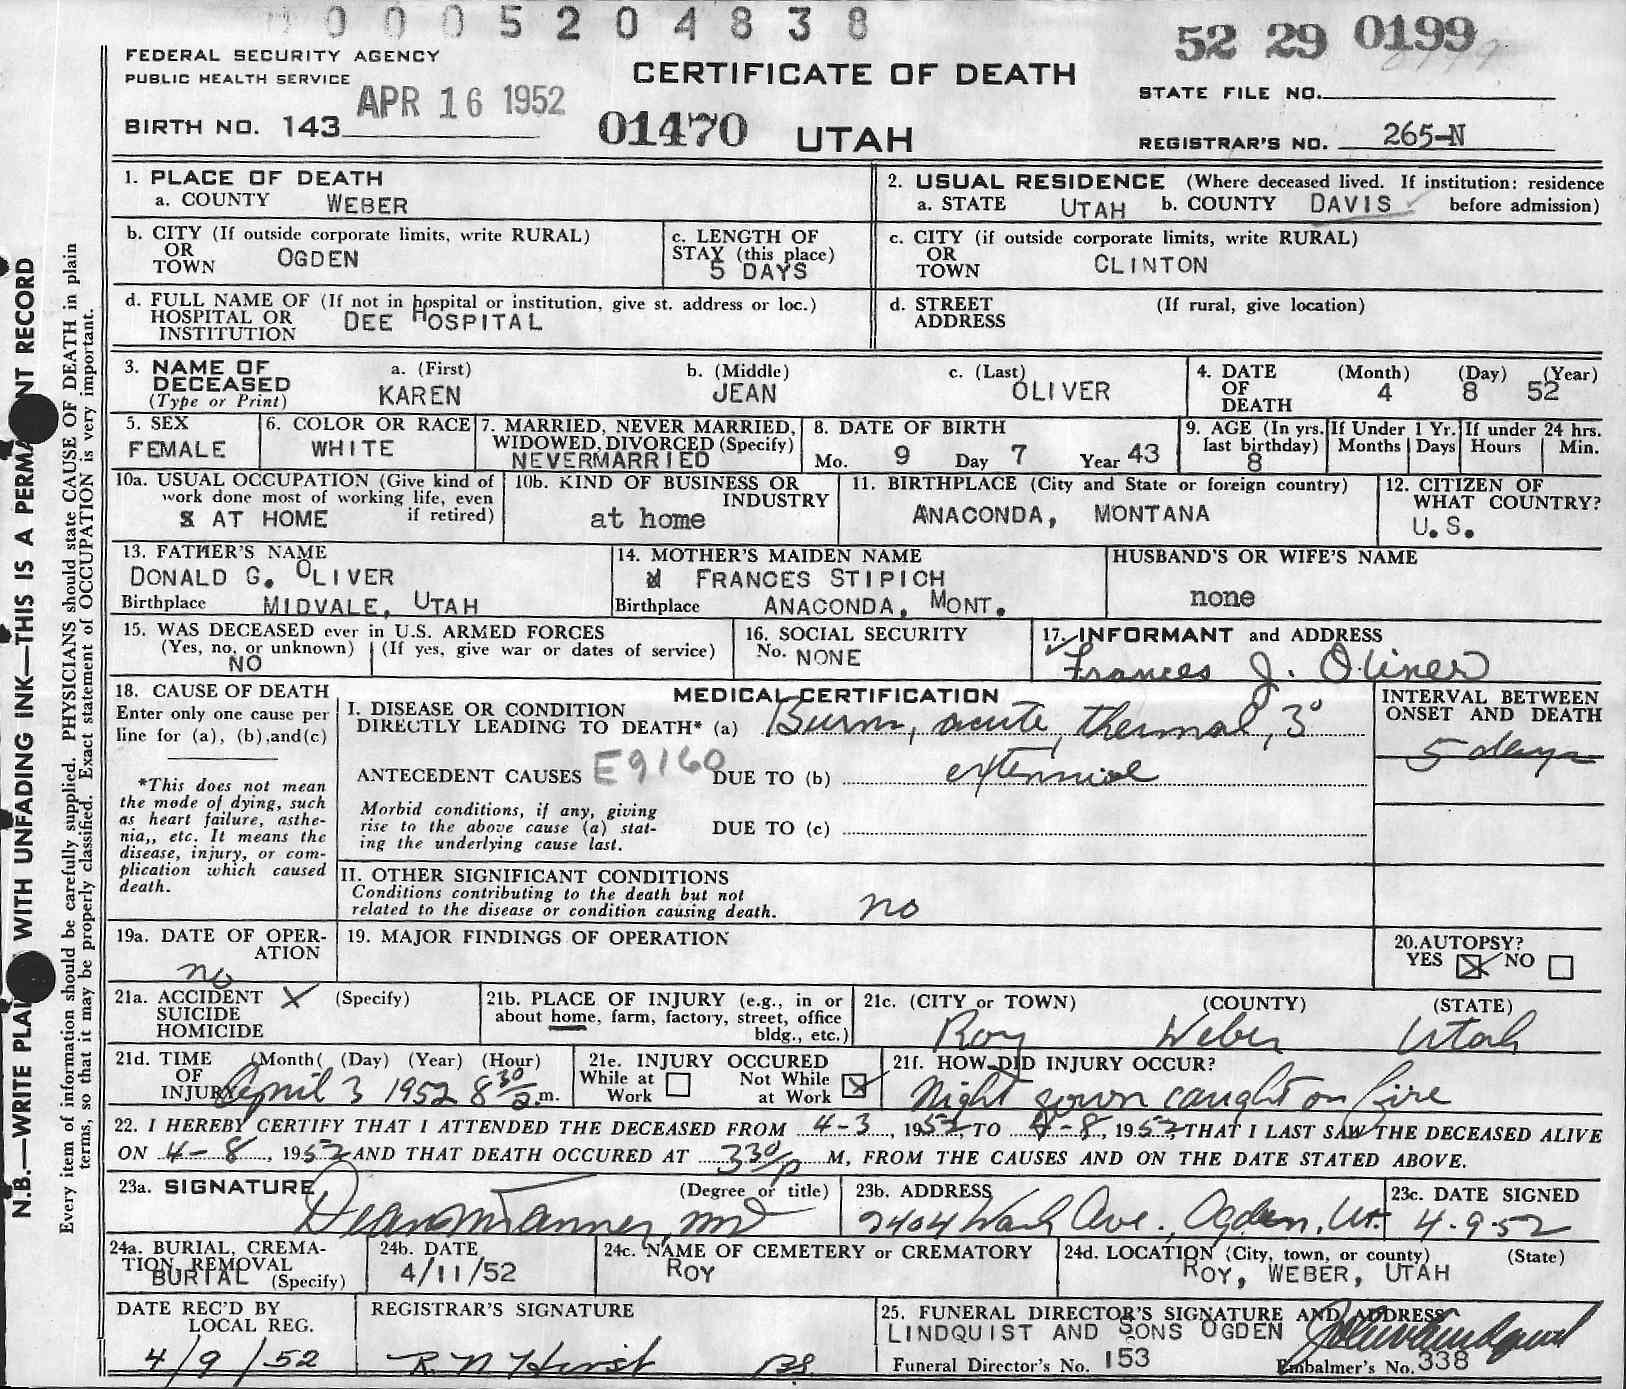 0005204838
52 29 0199
FEDERAL SECURITY AGENCY
PUBLIC HEALTH SERVICE
APR 16 1952
CERTIFICATE OF DEATH
STATE FILE NO.
BIRTH NO. 143
01470 UTAH
REGISTRAR'S NO. 265-N
N.B.—WRITE PLAI WITH UNFADING INK—THIS IS A PERMA NT RECORD
Every item of information should be carefully supplied. PHYSICIANS should state CAUSE OF DEATH in plain
terms, so that it may be properly classified. Exact statement of OCCUPATION is very important.
1. PLACE OF DEATH
a. COUNTY WEBER
2. USUAL RESIDENCE (Where deceased lived. If institution: residence
a. STATE UTAH b. COUNTY DAVIS before admission)
b. CITY (If outside corporate limits, write RURAL)
OR
TOWN OGDEN
c. LENGTH OF
STAY (this place)
5 DAYS
c. CITY (if outside corporate limits, write RURAL)
OR
TOWN CLINTON
d. FULL NAME OF (If not in hospital or institution, give st. address or loc.)
HOSPITAL OR
INSTITUTION DEE HOSPITAL
d. STREET (If rural, give location)
ADDRESS
3. NAME OF
DECEASED
(Type or Print)
a. (First) b. (Middle) c. (Last)
KAREN JEAN OLIVER
4. DATE
OF
DEATH
(Month) (Day) (Year)
4 8 52
5. SEX
FEMALE
6. COLOR OR RACE
WHITE
7. MARRIED, NEVER MARRIED,
WIDOWED, DIVORCED (Specify)
NEVERMARRIED
8. DATE OF BIRTH
Mo. 9 Day 7 Year 43
9. AGE (In yrs.
last birthday)
8
If Under 1 Yr.
Months Days
If under 24 hrs.
Hours Min.
10a. USUAL OCCUPATION (Give kind of
work done most of working life, even
if retired)
AT HOME
10b. KIND OF BUSINESS OR
INDUSTRY
at home
11. BIRTHPLACE (City and State or foreign country)
ANACONDA, MONTANA
12. CITIZEN OF
WHAT COUNTRY?
U.S.
13. FATHER'S NAME
DONALD G. OLIVER
Birthplace MIDVALE, UTAH
14. MOTHER'S MAIDEN NAME
FRANCES STIPICH
Birthplace ANACONDA, MONT.
HUSBAND'S OR WIFE'S NAME
none
15. WAS DECEASED ever in U.S. ARMED FORCES
(Yes, no, or unknown) (If yes, give war or dates of service)
NO
16. SOCIAL SECURITY
No. NONE
17. INFORMANT and ADDRESS
Frances J. Oliver
18. CAUSE OF DEATH
Enter only one cause per
line for (a), (b),and(c)
*This does not mean
the mode of dying, such
as heart failure, asthe-
nia,, etc. It means the
disease, injury, or com-
plication which caused
death.
MEDICAL CERTIFICATION
I. DISEASE OR CONDITION
DIRECTLY LEADING TO DEATH* (a) Burn, acute, thermal, 3°
ANTECEDENT CAUSES E9160 DUE TO (b) extensive
Morbid conditions, if any, giving
rise to the above cause (a) stat-
ing the underlying cause last.
DUE TO (c)
INTERVAL BETWEEN
ONSET AND DEATH
5 days
II. OTHER SIGNIFICANT CONDITIONS
Conditions contributing to the death but not
related to the disease or condition causing death.
no
19a. DATE OF OPER-
ATION
no
19. MAJOR FINDINGS OF OPERATION
20.AUTOPSY?
YES NO
21a. ACCIDENT X (Specify)
SUICIDE
HOMICIDE
21b. PLACE OF INJURY (e.g., in or
about home, farm, factory, street, office
bldg., etc.)
21c. (CITY or TOWN) (COUNTY) (STATE)
Roy Weber Utah
21d. TIME (Month( (Day) (Year) (Hour)
OF
INJURY April 3 1952 8 30 m.
21e. INJURY OCCURED
While at Work Not While at Work
21f. HOW DID INJURY OCCUR?
Night gown caught on fire
22. I HEREBY CERTIFY THAT I ATTENDED THE DECEASED FROM 4-3, 1952, TO 4-8, 1952, THAT I LAST SAW THE DECEASED ALIVE
ON 4-8, 1952 AND THAT DEATH OCCURED AT 330 p M, FROM THE CAUSES AND ON THE DATE STATED ABOVE.
23a. SIGNATURE (Degree or title)
Dean Tanner, MD
23b. ADDRESS
2404 Wash Ave., Ogden, Ut.
23c. DATE SIGNED
4-9-52
24a. BURIAL, CREMA-
TION, REMOVAL
BURIAL (Specify)
24b. DATE
4/11/52
24c. NAME OF CEMETERY or CREMATORY
ROY
24d. LOCATION (City, town, or county) (State)
ROY, WEBER, UTAH
DATE REC'D BY
LOCAL REG.
4/9/52
REGISTRAR'S SIGNATURE
25. FUNERAL DIRECTOR'S SIGNATURE AND ADDRESS
LINDQUIST AND SONS OGDEN
Funeral Director's No. 153 Embalmer's No. 338